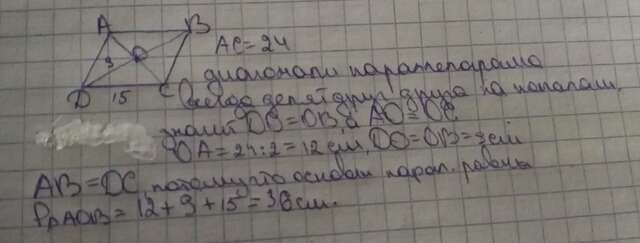 A B
AC = 24
9 O
D 15 C
диагонали параллелограма
всегда делят друг друга на пополам,
значит DO = OB, а AO = OC
OA = 24:2 = 12 см, DO = OB = 9 см
AB = DC, потому что основан. парал. равны
P₁AOB = 12 + 9 + 15 = 36 см.